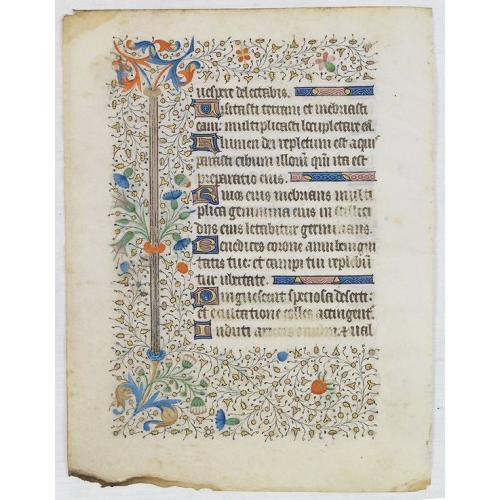 uespere delectabis.
Uisitasti terram et inebriasti
eam: multiplicasti locupletare eā.
Flumen dei repletum est aquis
parasti cibum illoru qm̄ ita est
preparatio eius.
Riuos eius inebrians multi
plica genimina eius in stillici
diis eius letabitur germinans.
Benedices corone anni benigni
tatis tue: et campi tui replebūt
tur ubertate.
Pinguescent speciosa deserti:
et exultatione colles accingent
Induti arietes ouium, & ual